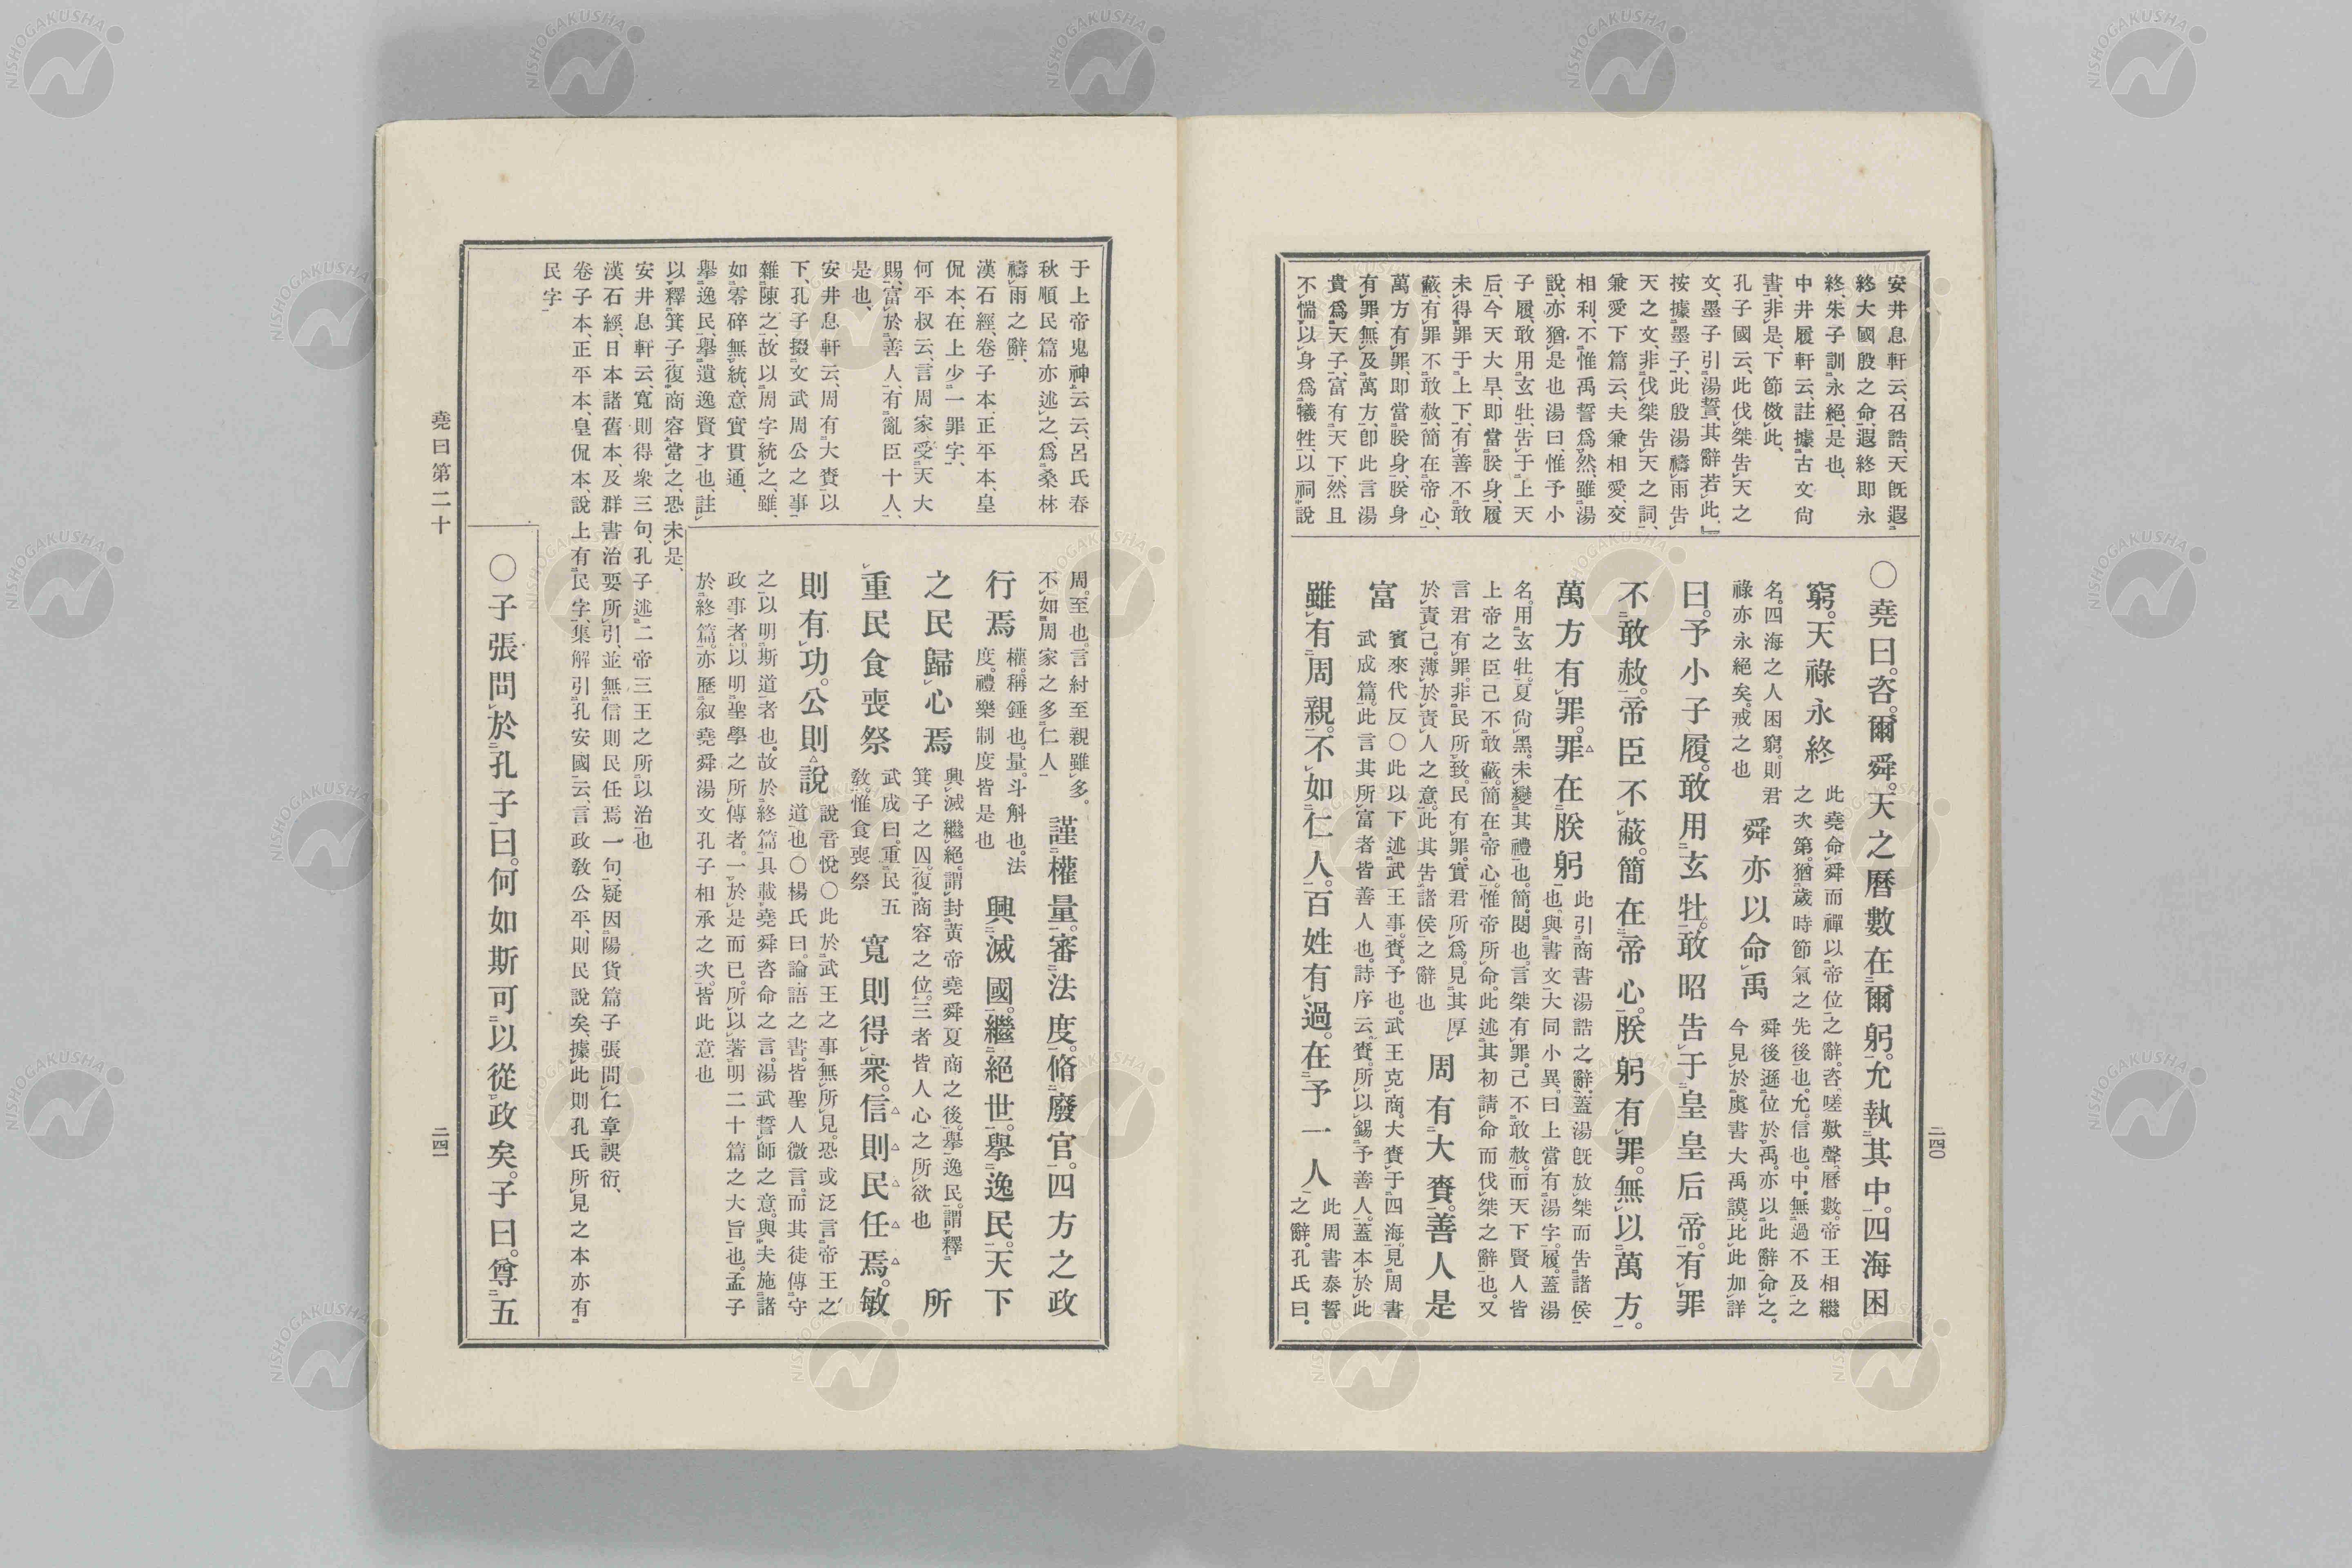 安井息軒云、召誥、天既遐
終大國殷之命、遐終即永
終、朱子訓永絕、是也、
中井履軒云、註據古文尙
書、非是、下節倣此、
孔子國云、此伐桀告天之
文、墨子引湯誓、其辭若此、
按據墨子、此殷湯禱雨告
天之文、非伐桀告天之詞、
兼愛下篇云、夫兼相愛、交
相利、不惟禹誓爲然、雖湯
說、亦猶是也湯曰、惟予小
子履、敢用玄牡、告于上天
后、今天大旱、即當朕身、履
未得罪于上下、有善不敢
蔽、有罪不敢赦、簡在帝心、
萬方有罪、即當朕身、朕身
有罪、無及萬方、卽此言湯
貴爲天子、富有天下、然且
不惴以身爲犧牲、以祠說
〇堯曰。咨。爾舜。天之曆數在爾躬。允執其中。四海困
窮。天祿永終
此堯命舜而禪以帝位之辭。咨。嗟歎聲。曆數。帝王相繼
之次第。猶歲時節氣之先後也。允。信也。中。無過不及之
名。四海之人困窮。則君
祿亦永絕矣。戒之也
舜亦以命禹
舜後遜位於禹。亦以此辭命之。
今見於虞書大禹謨。比此加詳
曰。予小子履。敢用玄牡。敢昭告于皇皇后帝。有罪
不敢赦。帝臣不蔽。簡在帝心。朕躬有罪。無以萬方。
萬方有罪。罪在朕躬
此引商書湯誥之辭。蓋湯既放桀而告諸侯
也。與書文大同小異。曰上當有湯字。履。蓋湯
名。用玄牡。夏尙黑。未變其禮也。簡。閱也。言桀有罪。己不敢赦。而天下賢人皆
上帝之臣。己不敢蔽。簡在帝心。惟帝所命。此述其初請命而伐桀之辭也。又
言君有罪。非民所致。民有罪。實君所爲。見其厚
於責己。薄於責人之意。此其告諸侯之辭也
周有大賚。善人是
富
賓來代反〇此以下述武王事。賚。予也。武王克商。大賚于四海。見周書
武成篇。此言其所富者皆善人也。詩序云。賚。所以錫予善人。蓋本於此
雖有周親。不如仁人。百姓有過。在予一人
此周書泰誓
之辭。孔氏曰。
二四〇
于上帝鬼神云云、呂氏春
秋順民篇亦述之、爲桑林
禱雨之辭、
漢石經、卷子本、正平本、皇
侃本、在上少一罪字、
何平叔云、言周家受天大
賜、富於善人、有亂臣十人、
是也、
安井息軒云、周有大賚以
下、孔子掇文武周公之事
雜陳之、故以周字統之、雖、
如零碎無統、意實貫通、
舉逸民、舉遺逸賢才也、註
以釋箕子復商容當之、恐未是、
安井息軒云、寬則得衆三句、孔子述二帝三王之所以治也
漢石經、日本諸舊本、及群書治要所引、並無信則民任焉一句、疑因陽貨篇子張問仁章誤衍、
卷子本、正平本、皇侃本、說上有民字、集解引孔安國云、言政敎公平、則民說矣、據此則孔氏所見之本亦有
民字、
周。至也。言紂至親雖多。
不如周家之多仁人
謹權量。審法度。脩廢官。四方之政
行焉
權。稱錘也。量。斗斛也。法
度。禮樂制度皆是也
興滅國。繼絕世。舉逸民。天下
之民歸心焉
興滅繼絕。謂封黃帝堯舜夏商之後。舉逸民。謂釋
箕子之囚。復商容之位。三者皆人心之所欲也
所
重民食喪祭
武成曰。重民五
敎。惟食喪祭
寬則得衆。信則民任焉。敏
則有功。公則說
說音悅〇此於武王之事無所見。恐或泛言帝王之
道也〇楊氏曰。論語之書。皆聖人微言。而其徒傳守
之以明斯道者也。故於終篇具載堯舜咨命之言。湯武誓師之意。與夫施諸
政事者。以明聖學之所傳者。一於是而已。所以著明二十篇之大旨也。孟子
於終篇。亦歷叙堯舜湯文孔子相承之次。皆此意也
〇子張問於孔子曰。何如斯可以從政矣。子曰。尊五
堯曰第二十
二四一
NISHOGAKUSHA